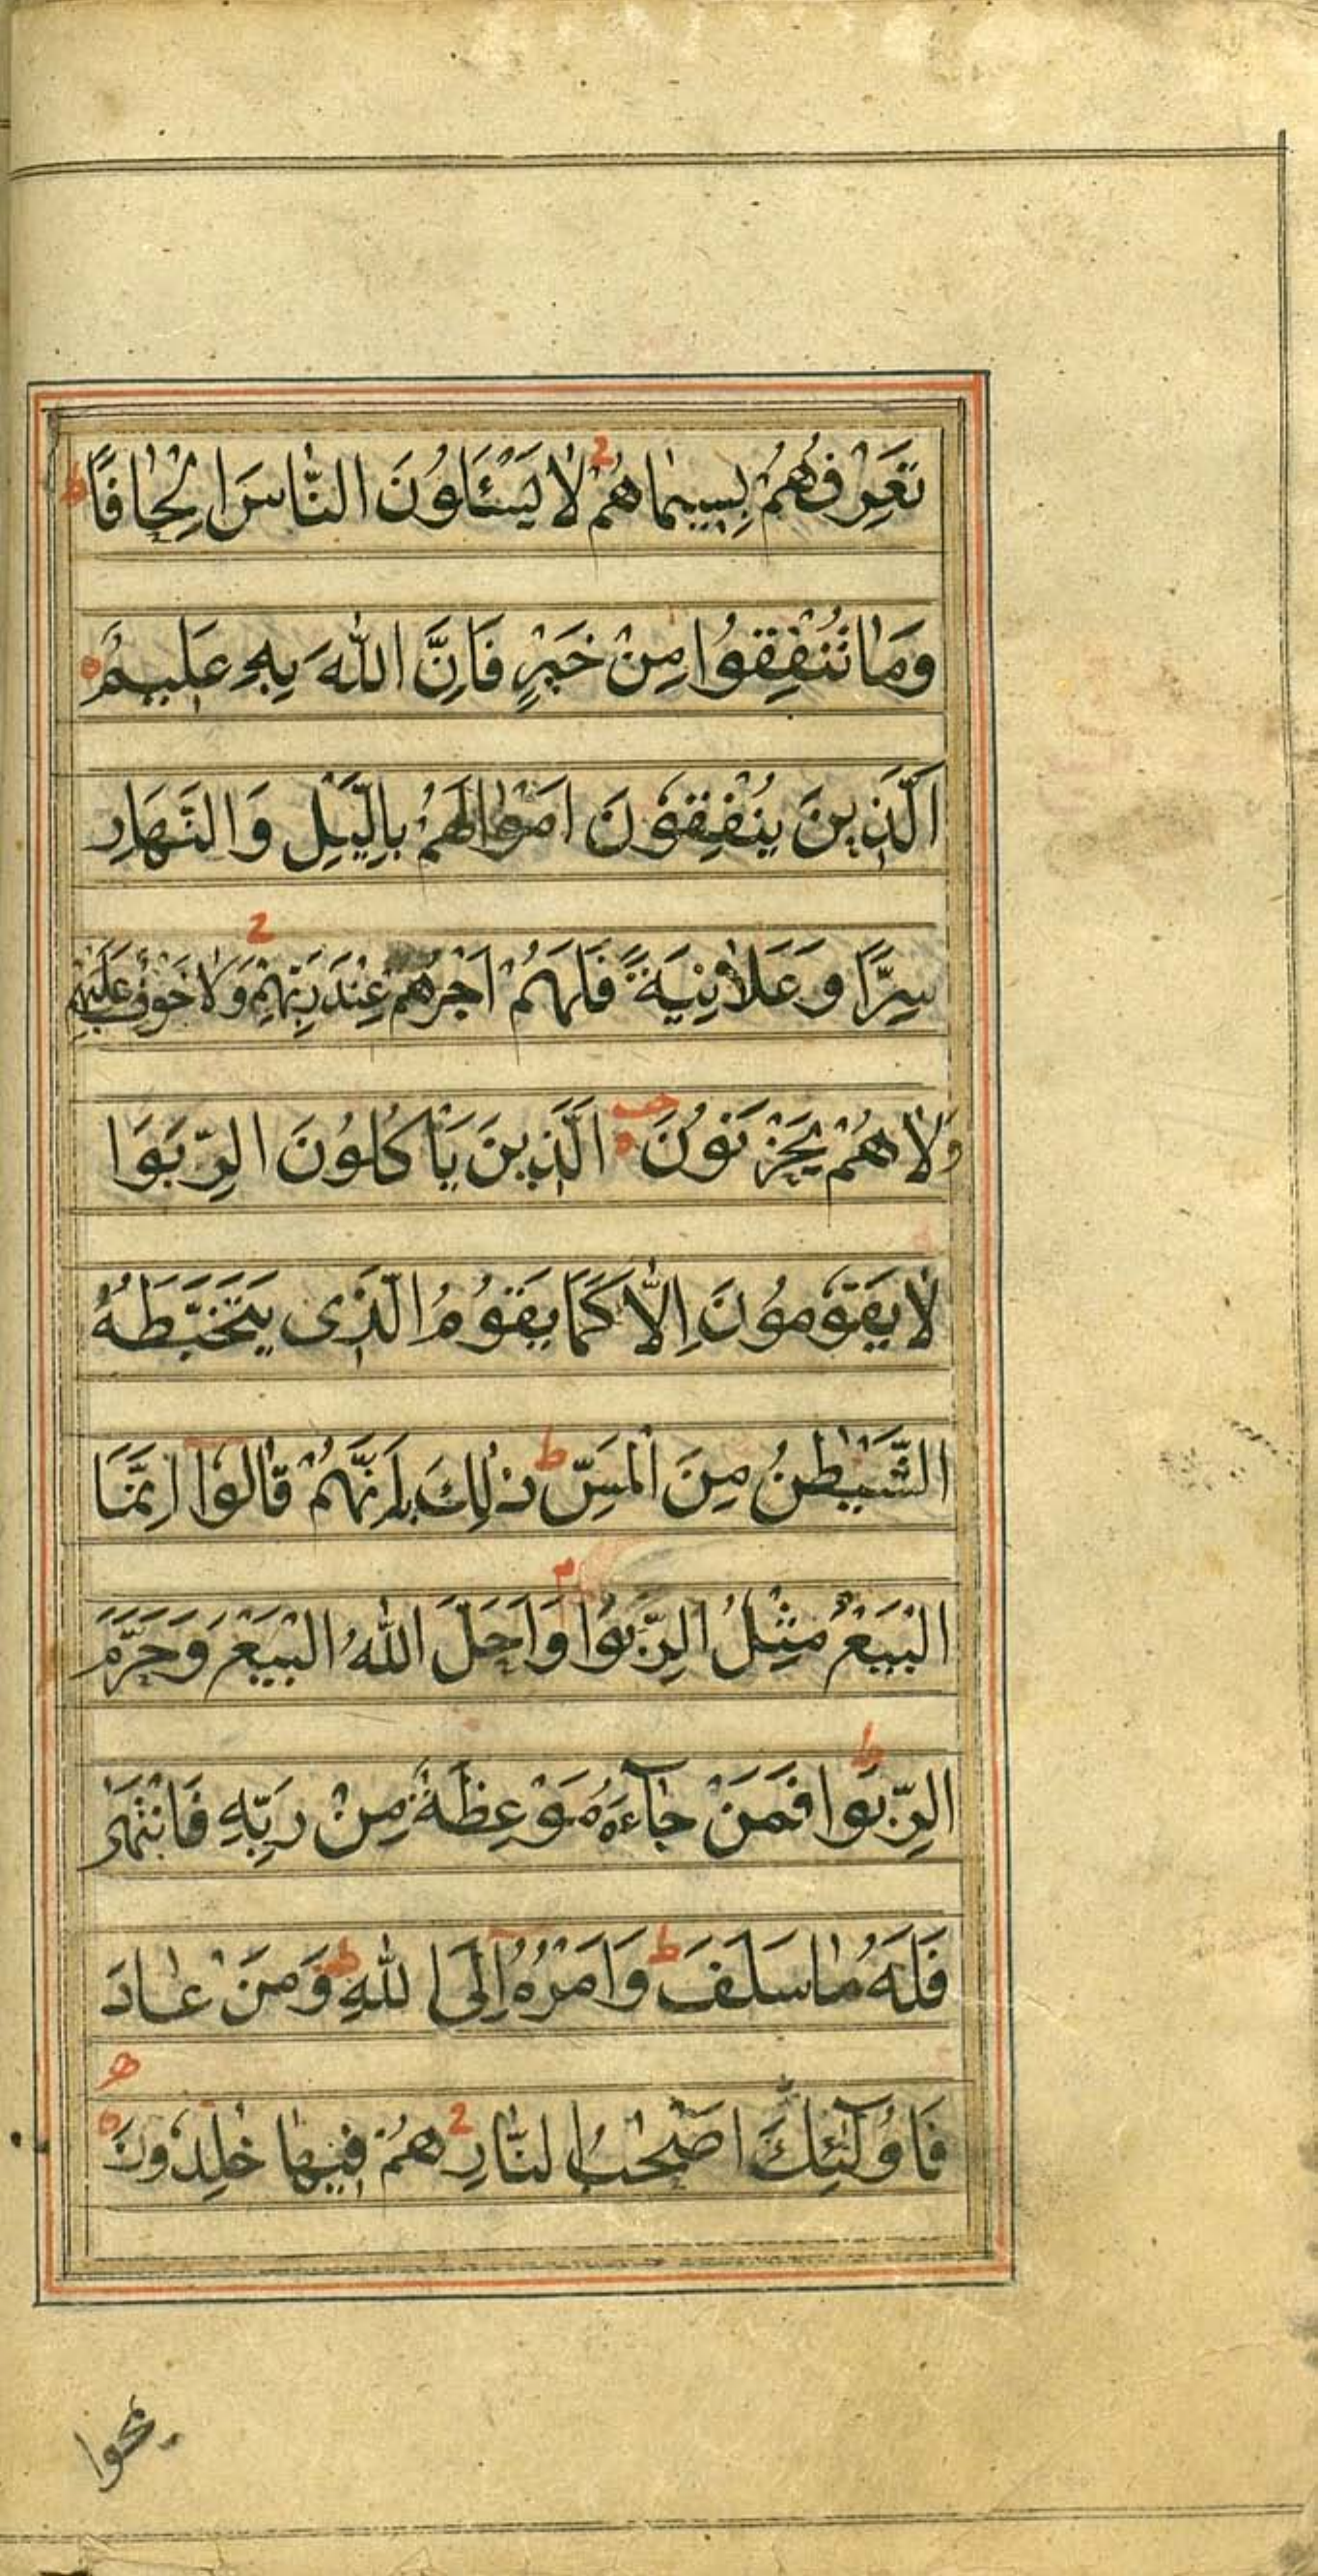 تَعْرِفُهُمْ بِسِيمٰاهُمْ ۚ لٰا يَسْئَلُونَ النّٰاسَ اِلْحٰافًا ط
وَمٰا تُنْفِقُوا مِنْ خَيْرٍ فَاِنَّ اللّٰهَ بِهِ عَلِيمٌ ه
اَلَّذِينَ يُنْفِقُونَ اَمْوٰالَهُمْ بِالَّيْلِ وَالنَّهَارِ
سِرًّا وَعَلٰانِيَةً فَلَهُمْ اَجْرُهُمْ عِنْدَ رَبِّهِمْ ج وَلٰا خَوْفٌ عَلَيْهِمْ
وَلٰا هُمْ يَحْزَنُونَ ه اَلَّذِينَ يَأْكُلُونَ الرِّبَوا
لٰا يَقُومُونَ اِلّٰا كَمَا يَقُومُ الَّذِى يَتَخَبَّطُهُ
الشَّيْطٰنُ مِنَ الْمَسِّ ط ذٰلِكَ بِاَنَّهُمْ قٰالُوا اِنَّمَا
الْبَيْعُ مِثْلُ الرِّبَوا م وَاَحَلَّ اللّٰهُ الْبَيْعَ وَحَرَّمَ
الرِّبَوا ط فَمَنْ جٰآءَهُ مَوْعِظَةٌ مِنْ رَبِّهِ فَانْتَهىٰ
فَلَهُ مٰا سَلَفَ ط وَاَمْرُهُ اِلَى اللّٰهِ ط وَمَنْ عٰادَ
فَاُولٰٓئِكَ اَصْحٰبُ النّٰارِ ج هُمْ فِيهٰا خٰلِدُونَ ه
يمحوا